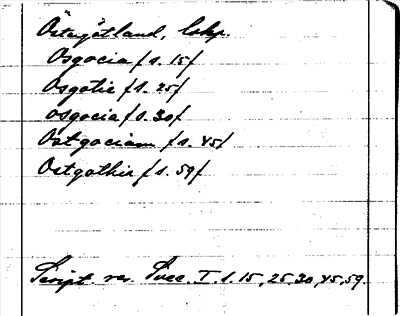 Östergötland, lskp.
Osgocia (s. 15)
Osgotie (s. 25)
Osgocia (s. 30)
Ostgociam (s. 45)
Ostgothia (s. 59)
Script. rer. Svec. I. s. 15, 25, 30, 45, 59.